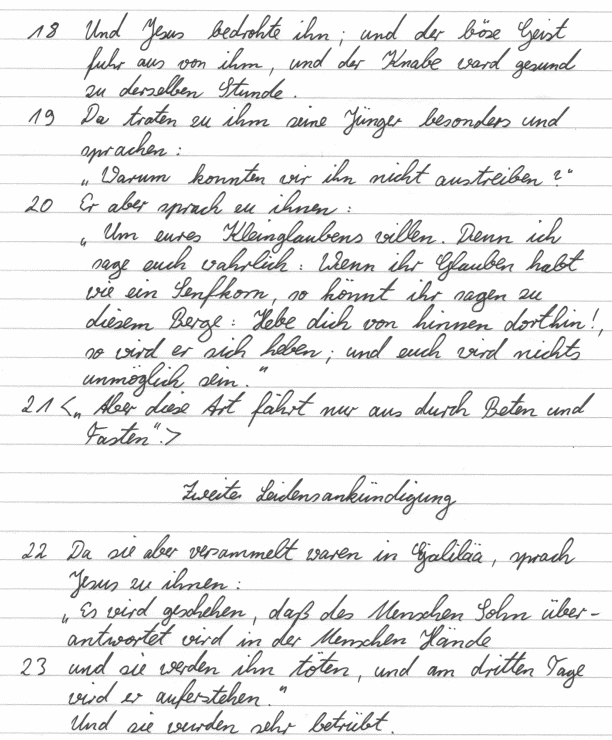 18 Und Jesus bedrohte ihn; und der böse Geist
fuhr aus von ihm, und der Knabe ward gesund
zu derselben Stunde.
19 Da traten zu ihm seine Jünger besonders und
sprachen:
„Warum konnten wir ihn nicht austreiben?“
20 Er aber sprach zu ihnen:
„Um eures Kleinglaubens willen. Denn ich
sage euch wahrlich: Wenn ihr Glauben habt
wie ein Senfkorn, so könnt ihr sagen zu
diesem Berge: Hebe dich von hinnen dorthin!,
so wird er sich heben; und euch wird nichts
unmöglich sein.“
21 <„Aber diese Art fährt nur aus durch Beten und
Fasten“.>
Zweite Leidensankündigung
22 Da sie aber versammelt waren in Galiläa, sprach
Jesus zu ihnen:
„Es wird geschehen, daß des Menschen Sohn über-
antwortet wird in der Menschen Hände
23 und sie werden ihn töten, und am dritten Tage
wird er auferstehen.“
Und sie wurden sehr betrübt.